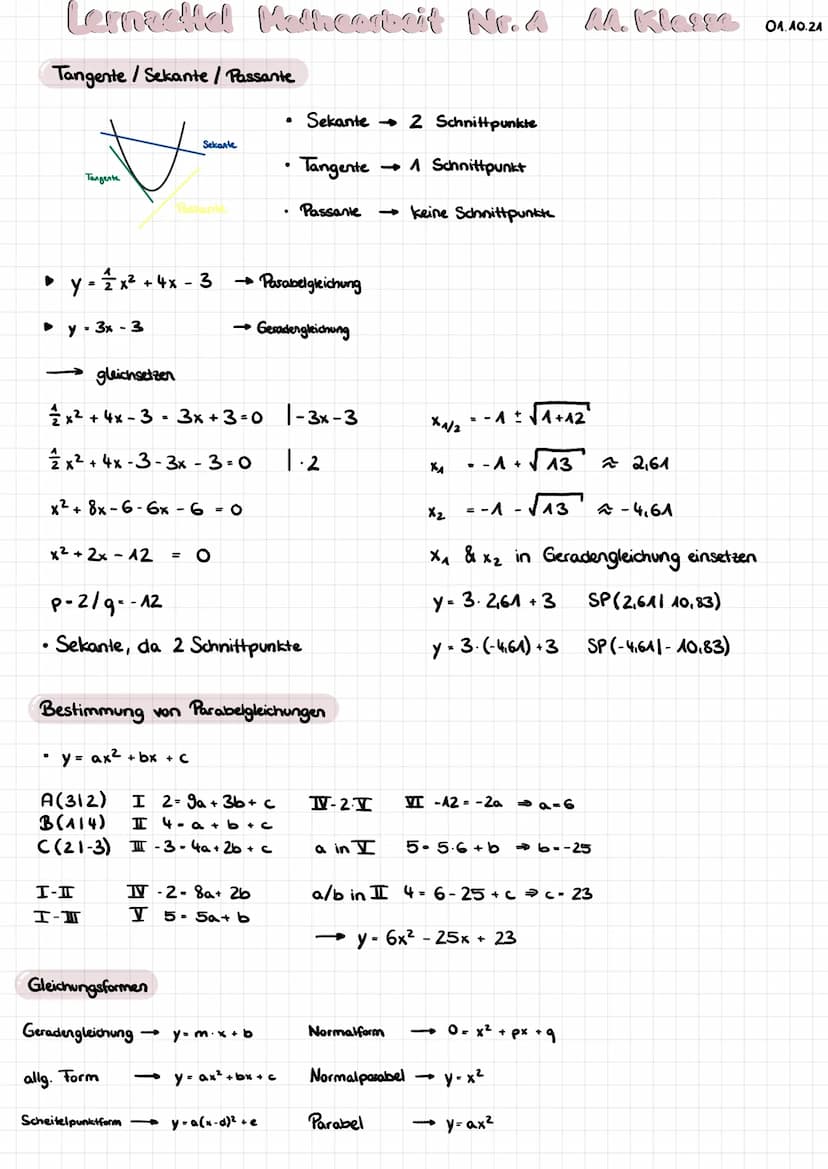 Lernzettel Mathearbeit Nr. 1 11. Klasse 01.10.21
Tangente / Sekante / Passante
Sekante
Tangente
Passante
• Sekante → 2 Schnittpunkte
• Tangente → 1 Schnittpunkt
• Passante → keine Schnittpunkte
▶ y = 1/2 x² + 4x - 3 → Parabelgleichung
▶ y = 3x - 3 → Geradengleichung
→ gleichsetzen
1/2 x² + 4x - 3 = 3x + 3 = 0 | -3x - 3
1/2 x² + 4x - 3 - 3x - 3 = 0 | · 2
x² + 8x - 6 - 6x - 6 = 0
x² + 2x - 12 = 0
p = 2 / q = -12
• Sekante, da 2 Schnittpunkte
x₁/₂ = -1 ± √1+12
x₁ = -1 + √13 ≈ 2,61
x₂ = -1 - √13 ≈ -4,61
x₁ & x₂ in Geradengleichung einsetzen
y = 3 · 2,61 + 3 SP(2,61 | 10,83)
y = 3 · (-4,61) + 3 SP(-4,61 | -10,83)
Bestimmung von Parabelgleichungen
• y = ax² + bx + c
A(3|2) I 2 = 9a + 3b + c
B(1|4) II 4 = a + b + c
C(2|-3) III -3 = 4a + 2b + c
I-II IV -2 = 8a + 2b
I-III V 5 = 5a + b
IV - 2·V VI -12 = -2a ⇒ a = 6
a in V 5 = 5·6 + b ⇒ b = -25
a/b in II 4 = 6 - 25 + c ⇒ c = 23
→ y = 6x² - 25x + 23
Gleichungsformen
Geradengleichung → y = m · x + b
allg. Form → y = ax² + bx + c
Scheitelpunktform → y = a(x-d)² + e
Normalform → 0 = x² + px + q
Normalparabel → y = x²
Parabel → y = ax²